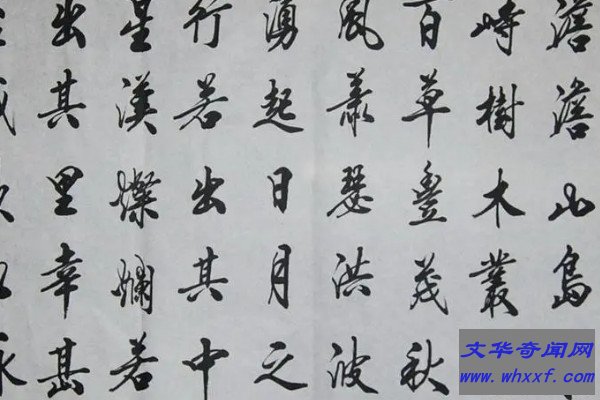 澹澹山島
峙樹木叢
百草豐茂秋
風蕭瑟洪波
湧起日月之
行若出其中
星漢燦爛若
出其里幸甚
文华奇闻网
www.whxxf.com